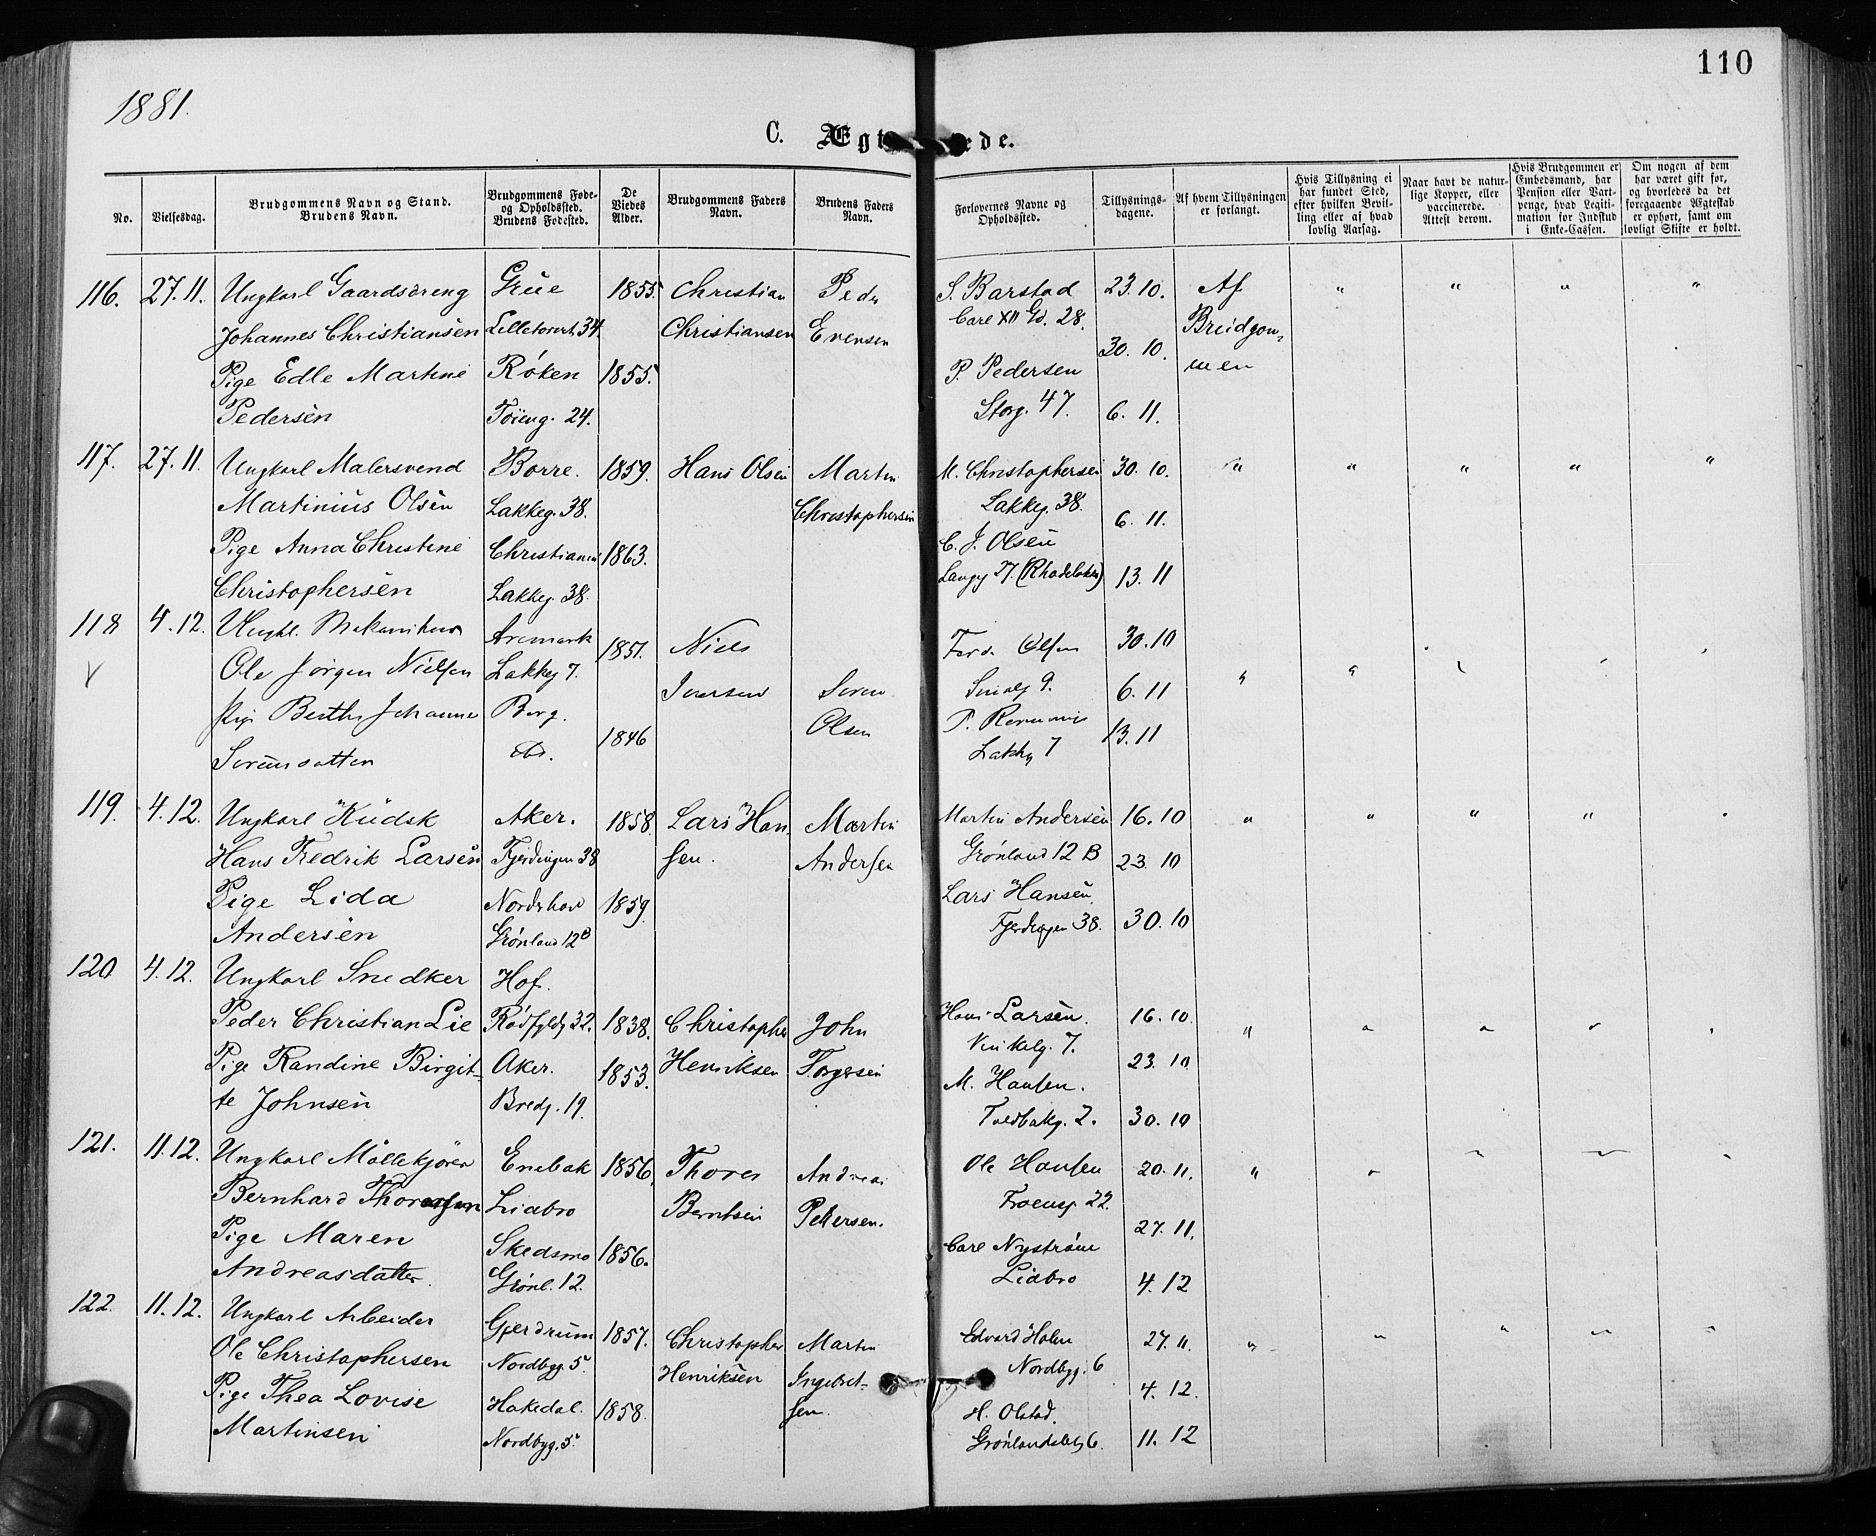 110
1881.
C. Ægt ede.
No.
Vielsesdag.
Brudgommens Navn og Stand.
Brudens Navn.
Brudgommens Føde-
og Opholdssted.
Brudens Fødested.
De
Viedes
Alder.
Brudgommens Faders
Navn.
Brudens Faders
Navn.
Forlovernes Navne og
Opholdssted.
Tillysnings-
dagene.
Af hvem Tillysningen
er forlangt.
Hvis Tillysning ei
har fundet Sted,
efter hvilken Bevil-
ling eller af hvad
lovlig Aarsag.
Naar havt de natur-
lige Kopper, eller
vaccinerede.
Attest derom.
Hvis Brudgommen er
Embedsmand, har
Pension eller Vart-
penge, hvad Legiti-
mation for Indskud
i Enke-Cassen.
Om nogen af dem
har været gift før,
og hvorledes da det
foregaaende Ægteskab
er ophørt, samt om
lovligt Skifte er holdt.
116. 27. 11. Ungkarl Gaardsdreng Grue 1855. Christian Peder S. Barstad 23. 10. Af " " " "
Johannes Christiansen Lilletorvet 34. Christiansen Evensen Carl XII Gd. 28. Brudgom-
Pige Edle Martine Røken 1855. P. Pedersen 30. 10. men
Pedersen Tøieng. 24. Storg. 47. 6. 11.
117. 27. 11. Ungkarl Malersvend Borre. 1859. Hans Olsen Martin M. Christophersen 30. 10. " " " " "
Martinius Olsen Lakkeg. 38. Christophersen Lakkeg. 38. 6. 11.
Pige Anna Christine Christiania 1863. C. J. Olsen
Christophersen Lakkeg. 38. Langg 27. 13. 11
118 4. 12. Ungkl. Mekanikus Aremark 1851. Niels Ferd. Olsen 30. 10
Ole Jørgen Nielsen Lakkeg 7. Iversen Søren 9. 6. 11 "
Pige Berthe Johanne Berg. 1846 Olsen P. 13. 11
Sørensdatter do. Lakkeg 7
119. 4. 12. Ungkarl Kudsk Aker. 1858. Lars Han- Martin Martin Andersen 16. 10 " " " "
Hans Fredrik Larsen Fjerdingen 38 sen. Andersen Grønland 12 B 23. 10
Pige Lida Norderhov 1859. Lars Hansen
Andersen Grønland 12B Fjerdingen 38. 30. 10
120 4. 12. Ungkarl Snedker Hof.
Peder Christian Lie Rødfyldg 32. 1838. Christopher John Hans Larsen. 16. 10. "
Pige Randine Birgit- Aker. 1853. Henriksen Torgersen Vinkelg. 7. 23. 10
te Johnsen Bredg. 19. M. Hansen.
Toldbakg. 2. 30. 10
121. 11. 12. Ungkarl Møllekjører Enebak 1856. Thores Andreas Ole Hansen 20. 11. "
Bernhard Thoresen Liabro Berntsen Pettersen. 22. 27. 11.
Pige Maren Skedsmo 1856. Carl Nystrøm
Andreasdatter. Grønl. 12. Liabro 4. 12
122. 11. 12. Ungkarl Arbeider Gjerdrum 1857. Christopher Martin Edvard Holm 27. 11. "
Ole Christophersen Nordbyg. 5 Henriksen Ingebret- Nordbyg. 6
Pige Thea Lovise Hakedal. 1858. sen. H. Olstad. 4. 12.
Martinsen Nordbyg. 5. Grønlandsl. 6. 11. 12